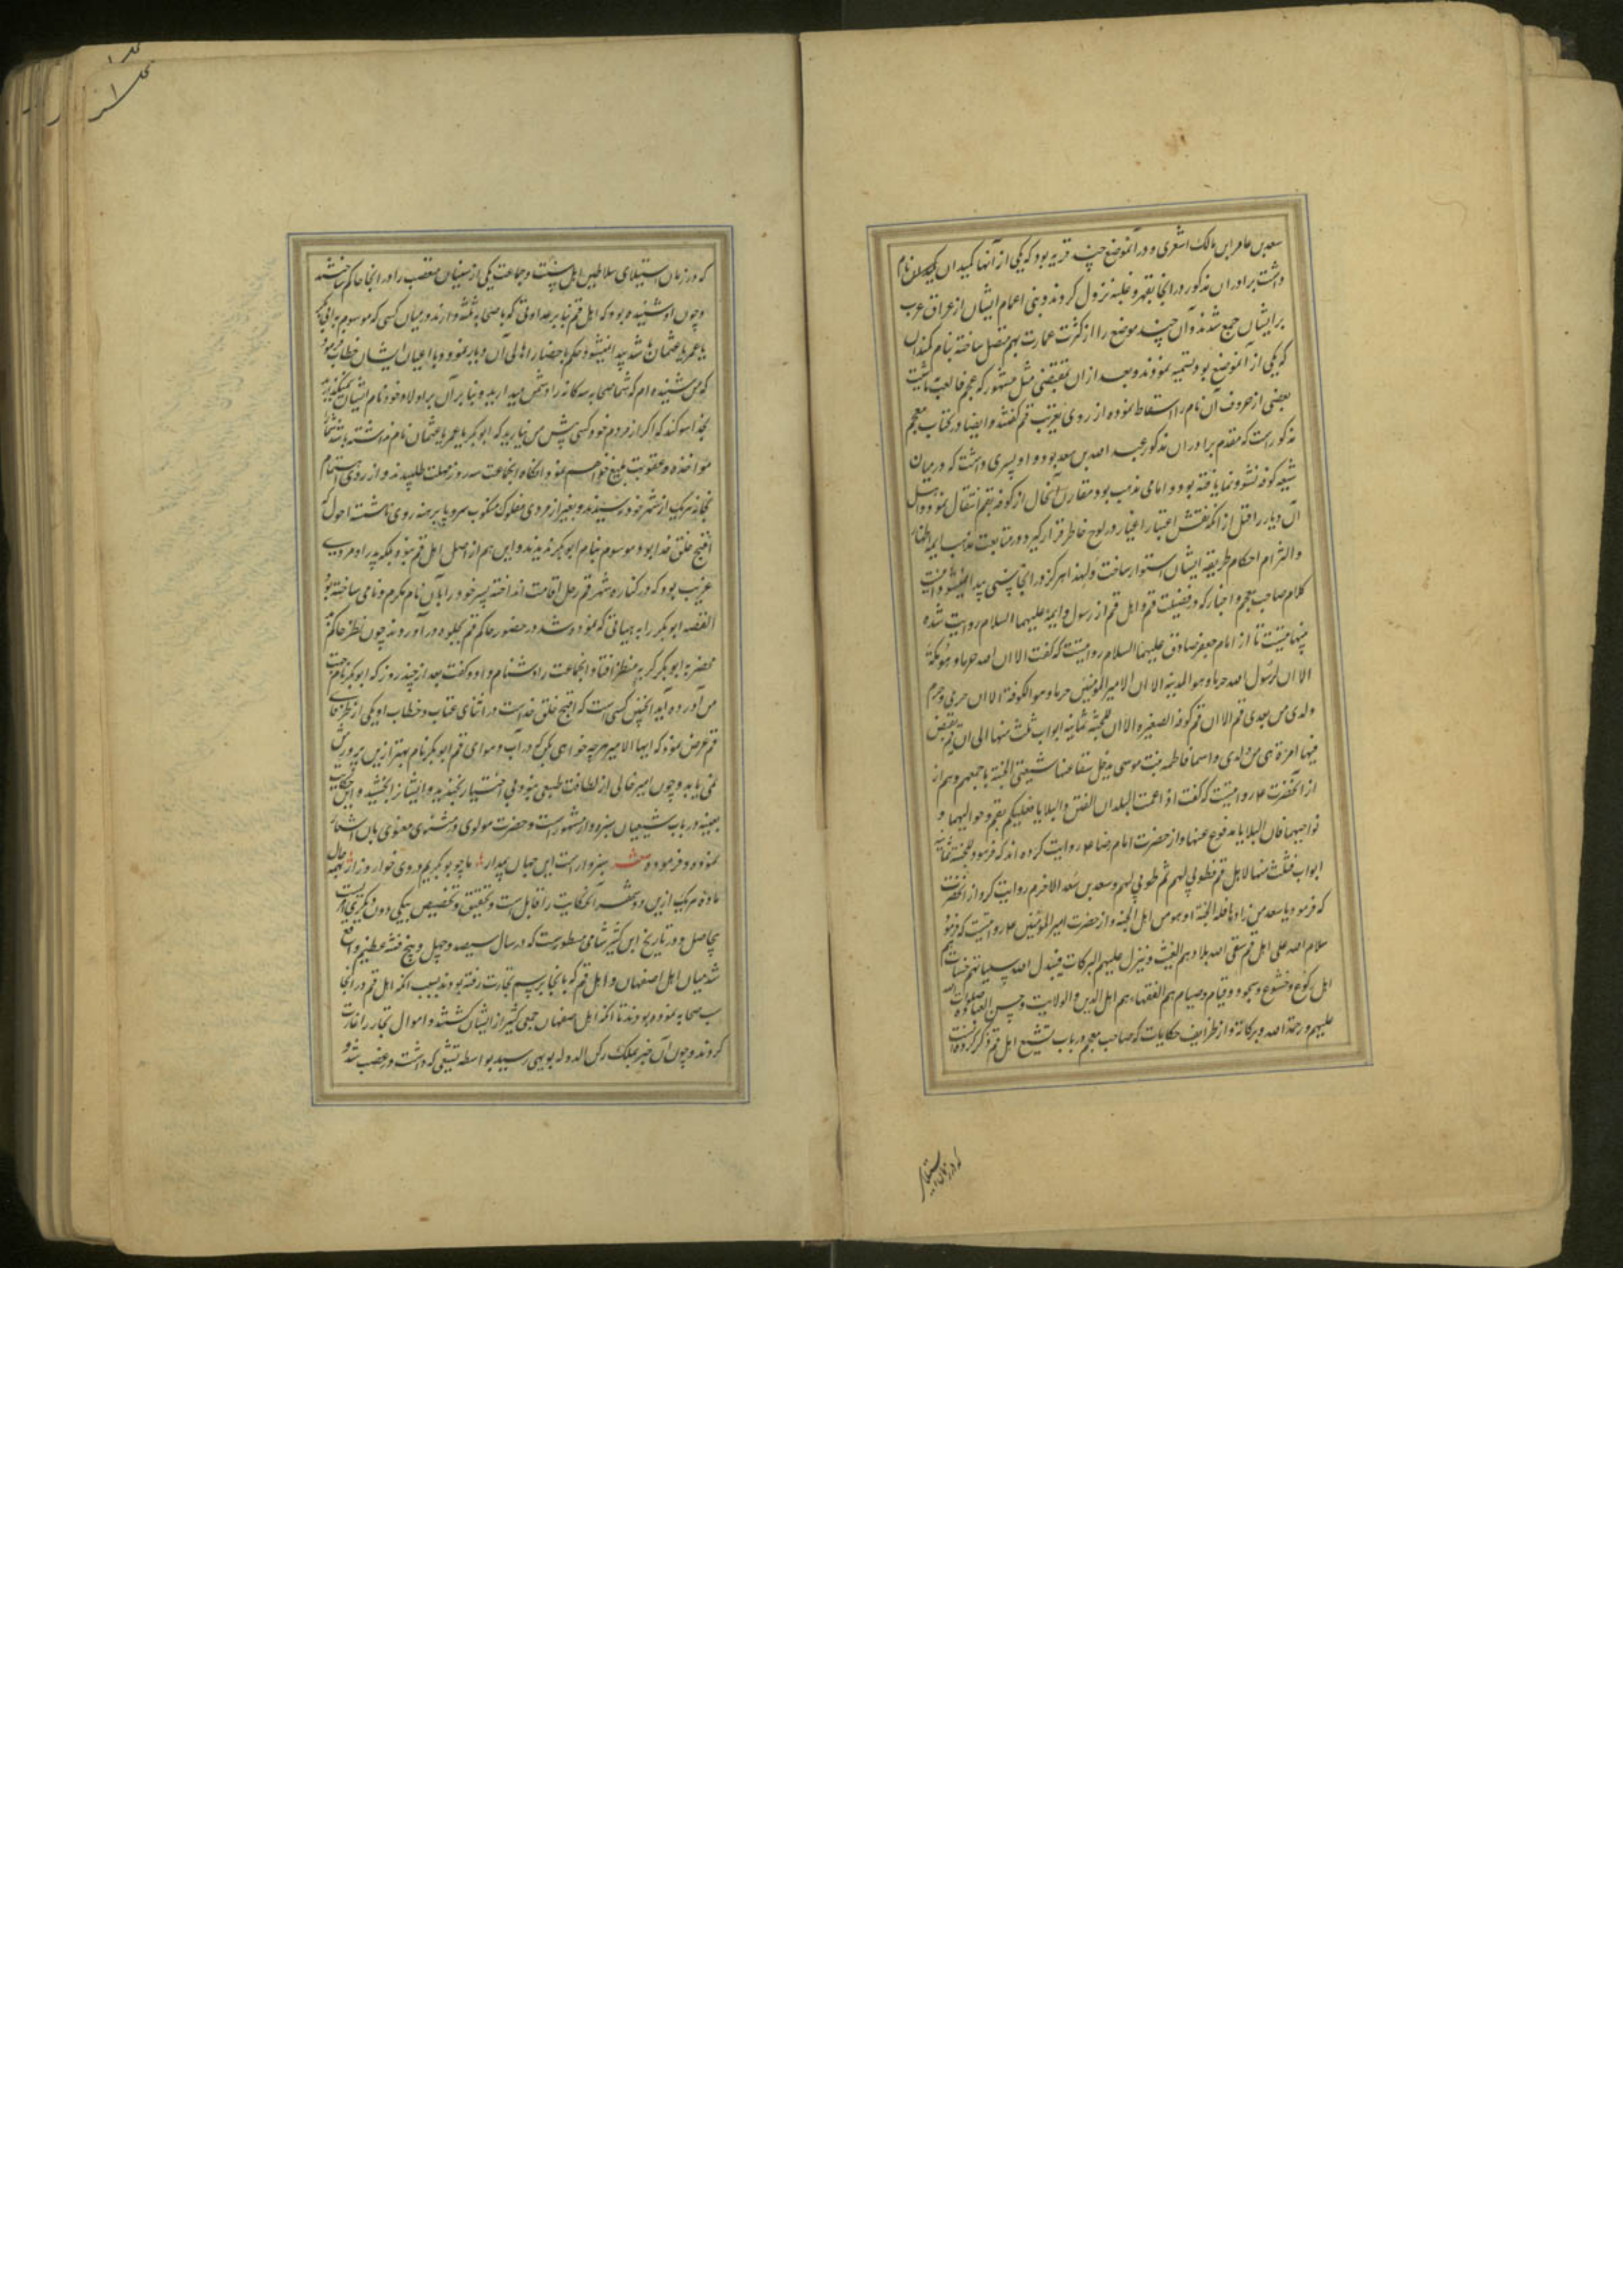 سعد بن عامر ابن مالک اشعری و در آنموضع چند قریه بود که یکی از آنها کمیدان نام
داشت برادران مذکور در انجا بقهر و غلبه نزول کردند و بنی اعمام ایشان از عراق عرب
برایشان جمع شدند و آن چند موضع را از کثرت عمارت بهم متصل ساخته بنام کمندان
که یکی از آنموضع بود تسمیه نمودند و بعد از ان بمقتضی مثل مشهور که عجم فالعب به ماشیت
بعضی از حروف آن نام را اسقاط نموده از روی تعریب قم گفتند و ایضا در کتاب معجم
مذکور است که مقدم برادران مذکور عبد الله بن سعد بود و او پسری داشت که در میان
شیعه کوفه نشو و نما یافته بود و امامی مذهب بود مقارن آنحال از کوفه بقم انتقال نمود و اهل
آن دیار را قبل از انکه نقش اعتبار اغیار در لوح خاطر قرار گیرد در متابعت مذهب ایمه اطهار
و التزام احکام طریقه ایشان استوار ساخت و لهذا هرگز در انجا سنی پیدا نمیشود انتهت
کلام صاحب معجم و اخبار که در فضیلت قم و اهل قم از رسول و ایمه علیهما السلام روایت شده
بینهایتست تا از امام جعفر صادق علیهما السلام روایتست که گفت الا ان لله حرما و هو مکة
الا ان لرسول الله حرما و هو المدینه الا ان لامیر المومنین حرما و هو الکوفة الا ان حرمی و حرم
ولدی من بعدی قم الا ان قم کوفه الصغیره الا ان للجنة ثمانیه ابواب ثلث منها الی قم تقبض
فیها امرءة هی من ولدی و اسمها فاطمه بنت موسی یدخل بشفاعتها شیعتی الجنة باجمعهم و هم از
از آنحضرت ع روایتست که گفت اذا عمت البلدان الفتن و البلایا فعلیکم بقم و حوالیها و
نواحیها فان البلایا مدفوع عنها و از حضرت امام رضا ع روایت کرده اند که فرمود للجنة ثمانیه
ابواب فثلث منها لاهل قم فطوبی لهم ثم طوبی لهم و سعد بن سعد الاخرم روایت کرد از آنحضرت
که فرمود یا سعد من زارها فله الجنة او هو من اهل الجنه و از حضرت امیر المومنین ع روایتست که فرمود
سلام الله علی اهل قم سقی الله بلادهم الغیث و ینزل علیهم البرکات فیبدل الله سیئاتهم حسنات هم
اهل رکوع و خشوع و سجود و قیام و صیام هم الفقهاء هم اهل الدین و الولایت و حسن العباده صلوات الله
علیهم و رحمة الله و برکاته و از ظرایف حکایات که صاحب معجم در باب تشیع اهل قم ذکر کرده انست
که در زمان استیلای
که در زمان استیلای سلاطین اهل سنت و جماعت یکی از سنیان متعصب را در انجا حاکم ساختند
و چون او شنیده بود که اهل قم بنا بر عداوتی که با صحابه ثلثه دارند در میان کسی که موسوم به ابی بکر
یا عمر یا عثمان باشد پیدا نمیشود حکم باحضار اهالی آن دیار نمود و با اعیان ایشان خطاب فرمود
که من شنیده ام که شما صحابه سه کانه را دشمن میدارید و بنا بر آن بر اولاد خود نام ایشان نمیگذارید
بخدا سوگند که اگر از مردم خود کسی پیش من نیارید که ابوبکر یا عمر یا عثمان نام نداشته باشد شما را
مواخذه و عقوبت بلیغ خواهم نمود انکاه انجماعت سه روز مهلت طلبیدند و از روی اهتمام
بخانه هریک از شهر خود رسیدند و بغیر از مردی مفلوک منکوب سر و پا برهنه روی ناشسته احول که
اقبح خلق خدا بود موسوم بنام ابوبکر ندیدند و این هم از اصل اهل قم نبوده بلکه پدر او مردی
غریب بود که در کناره شهر قم رحل اقامت انداخته پسر خود را بآن نام مکرم و نامی ساخته بود
القصه ابوبکر را به هیاتی که نموده شد در حضور حاکم قم بجلوه در آوردند چون نظر حاکم
محضر به ابوبکر کریه منظر افتاد انجماعت را دشنام داد و گفت بعد از چند روز که ابوبکر نام جهت
من آورده آید اینچنین کسی است که اقبح خلق خداست در اثنای عتاب و خطاب او یکی از ظرفای
قم عرض نمود که ایها الامیر هرچه خواهی بکن که در آب و هوای قم ابوبکر نام بهتر از این پرورش
نمی یابد و چون امیر خالی از لطافت طبعی نبود بی اختیار بخندید و ایشانرا بخشید و این حکایت
بعینه در باب شیعیان سبزوار مشهور است و حضرت مولوی در مثنوی معنوی بان اشعار
نموده و فرموده شعر سبزوار است این جهان بیمدار ما چو بوبکریم در وی خوار و زار حال
ماده هریک ازین دو شهر آنحکایت را قابل است و تحقیق و تخصیص بیکی دون دیگری
بیحاصل و در تاریخ ابن کثیر شامی مسطورست که در سال سیصد و چهل و پنج فتنه عظیم واقع
شد میان اهل اصفهان و اهل قم که بانجا برسم تجارت رفته بودند بسبب انکه اهل قم در انجا
سب صحابه نموده بودند تا انکه اهل اصفهان جمعی کثیر از ایشان کشتند و اموال تجار را غارت
کردند و چون آن خبر بملک رکن الدوله بویهی رسید بواسطه تشیعی که داشت در غضب شد و